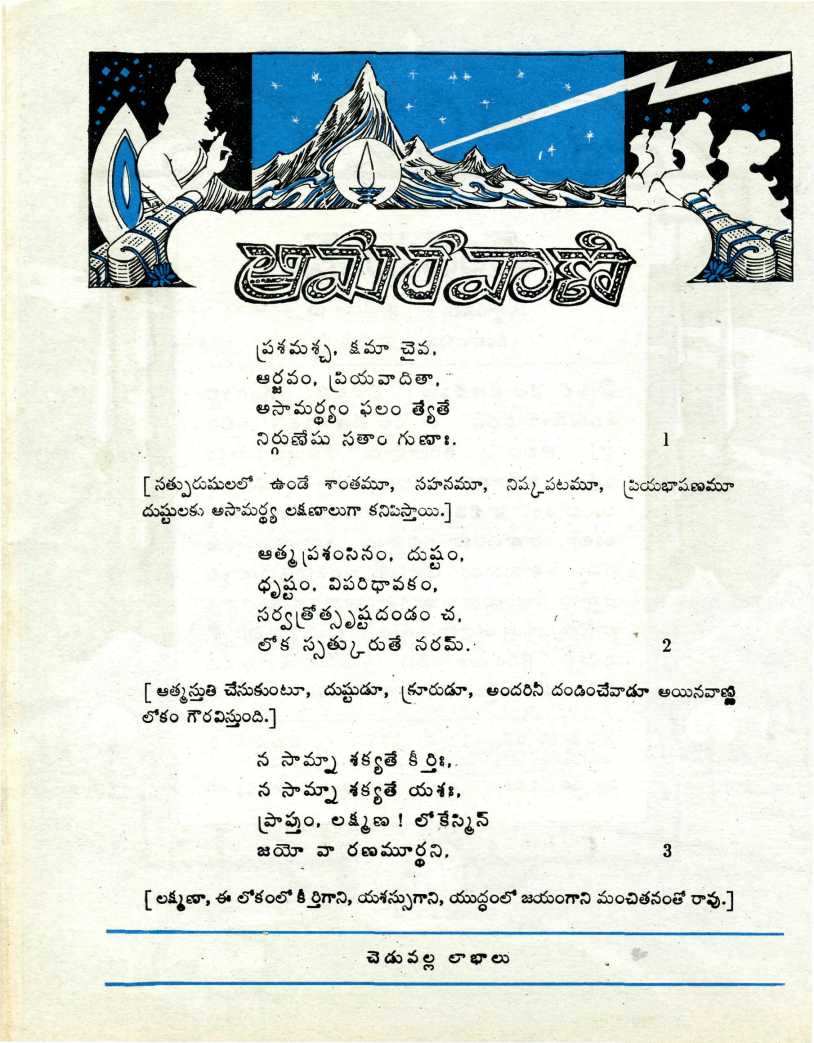 అమరవాణి
ప్రశమశ్చ, క్షమా చైవ,
ఆర్జవం, ప్రియవాదితా,
అసామర్థ్యం ఫలం త్యేతే
నిర్గుణేషు సతాం గుణాః. 1
[సత్పురుషులలో ఉండే శాంతమూ, సహనమూ, నిష్కపటమూ, ప్రియభాషణమూ
దుష్టులకు అసామర్థ్య లక్షణాలుగా కనిపిస్తాయి.]
ఆత్మప్రశంసినం, దుష్టం,
ధృష్టం, విపరిధావకం,
సర్వత్రోత్సృష్టదండం చ,
లోక స్సత్కురుతే నరమ్. 2
[ఆత్మస్తుతి చేసుకుంటూ, దుష్టుడూ, క్రూరుడూ, అందరినీ దండించేవాడూ అయినవాణ్ణి
లోకం గౌరవిస్తుంది.]
న సామ్నా శక్యతే కీర్తిః,
న సామ్నా శక్యతే యశః,
ప్రాప్తుం, లక్ష్మణ ! లోకేస్మిన్
జయో వా రణమూర్ధని. 3
[లక్ష్మణా, ఈ లోకంలో కీర్తిగాని, యశస్సుగాని, యుద్ధంలో జయంగాని మంచితనంతో రావు.]
చెడువల్ల లాభాలు